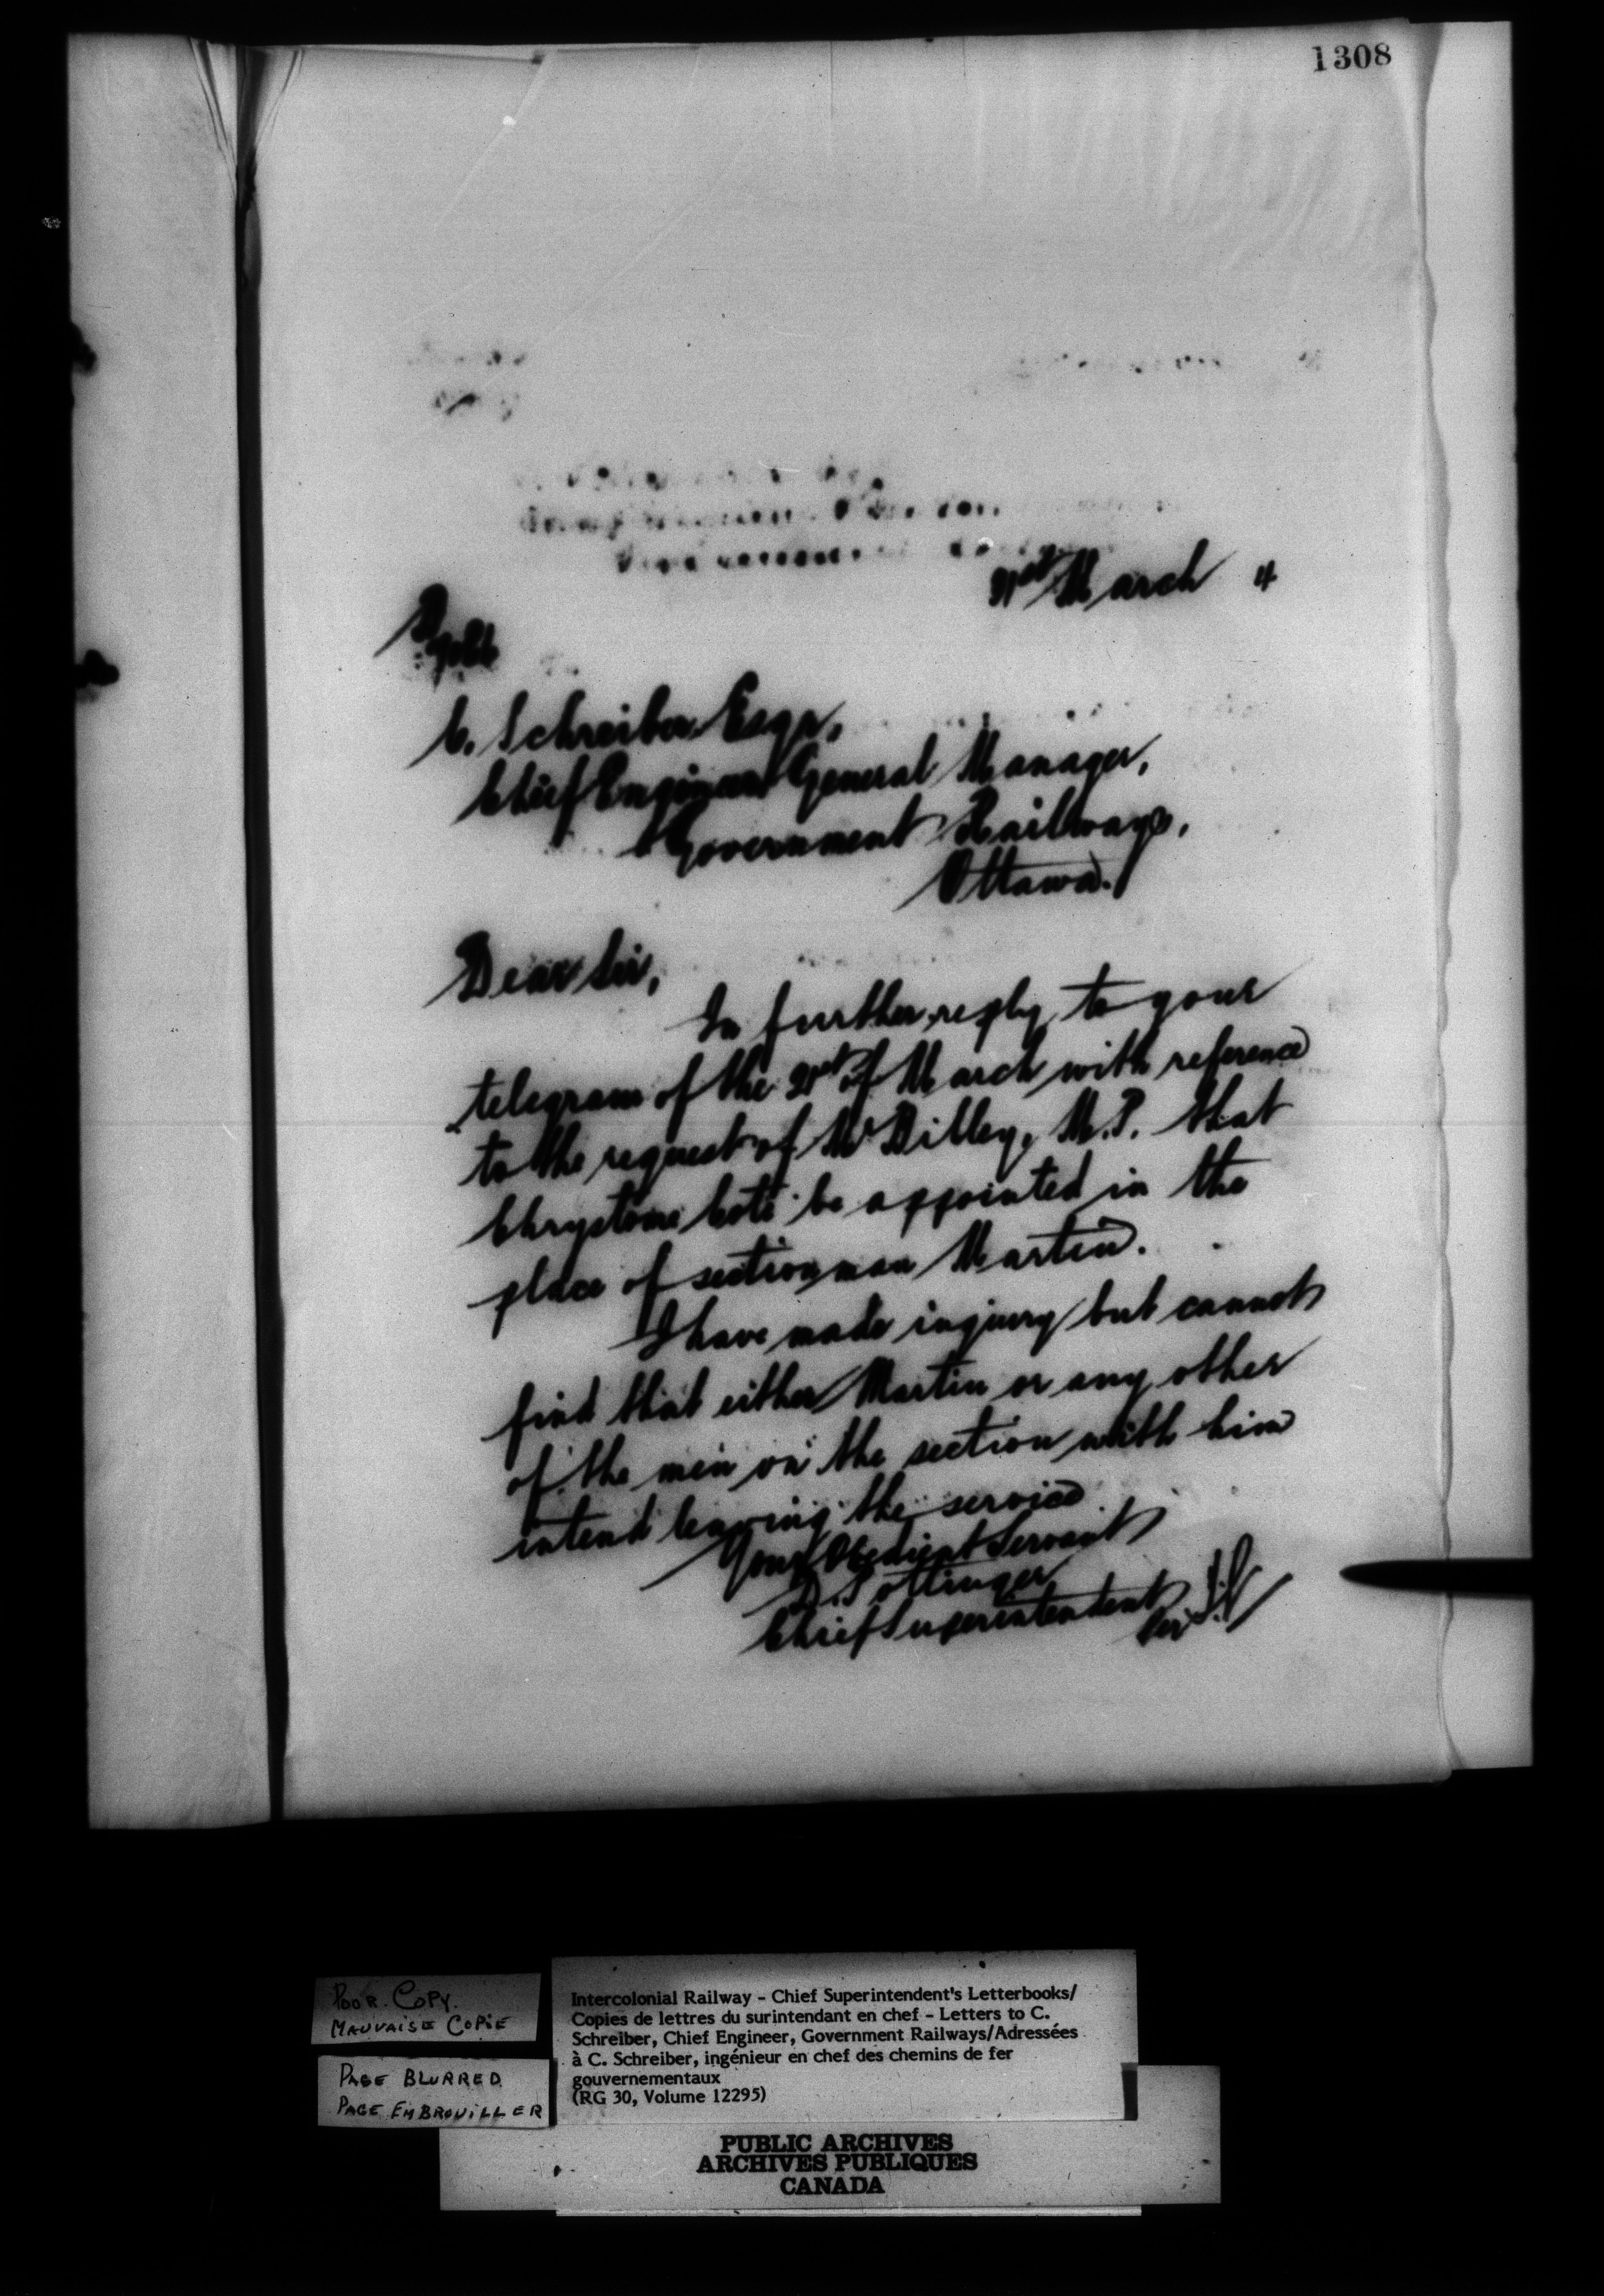 1308
31st March 4
C. Schreiber Esqr,
Chief Engineer General Manager,
Government Railways,
Ottawa.
Dear Sir,
In further reply to your
telegram of the 21st of March with reference
to the request of Mr Billey, M.P. that
Chrystome Coté be appointed in the
place of sectionman Martin.
I have made inquiry but cannot
find that either Martin or any other
of the men on the section with him
intend leaving the service.
Your Obedient Servant
D. Pottinger
Chief Superintendent
Per
POOR COPY.
MAUVAISE COPIE
PAGE BLURRED
PAGE EMBROUILLER
Intercolonial Railway – Chief Superintendent's Letterbooks/
Copies de lettres du surintendant en chef – Letters to C.
Schreiber, Chief Engineer, Government Railways/Adressées
à C. Schreiber, ingénieur en chef des chemins de fer
gouvernementaux
(RG 30, Volume 12295)
PUBLIC ARCHIVES
ARCHIVES PUBLIQUES
CANADA